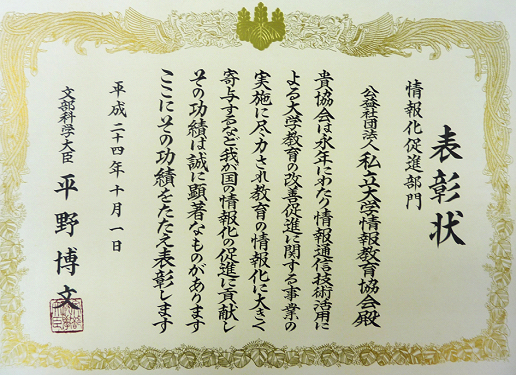 表彰状
情報化促進部門
公益社団法人 私立大学情報教育協会殿
貴協会は永年にわたり情報通信技術活用に
よる大学教育の改善促進に関する事業の
実施に尽力され教育の情報化に大きく
寄与するなど我が国の情報化の促進に貢献し
その功績は誠に顕著なものがあります
ここにその功績をたたえ表彰します
平成二十四年十月一日
文部科学大臣 平野博文